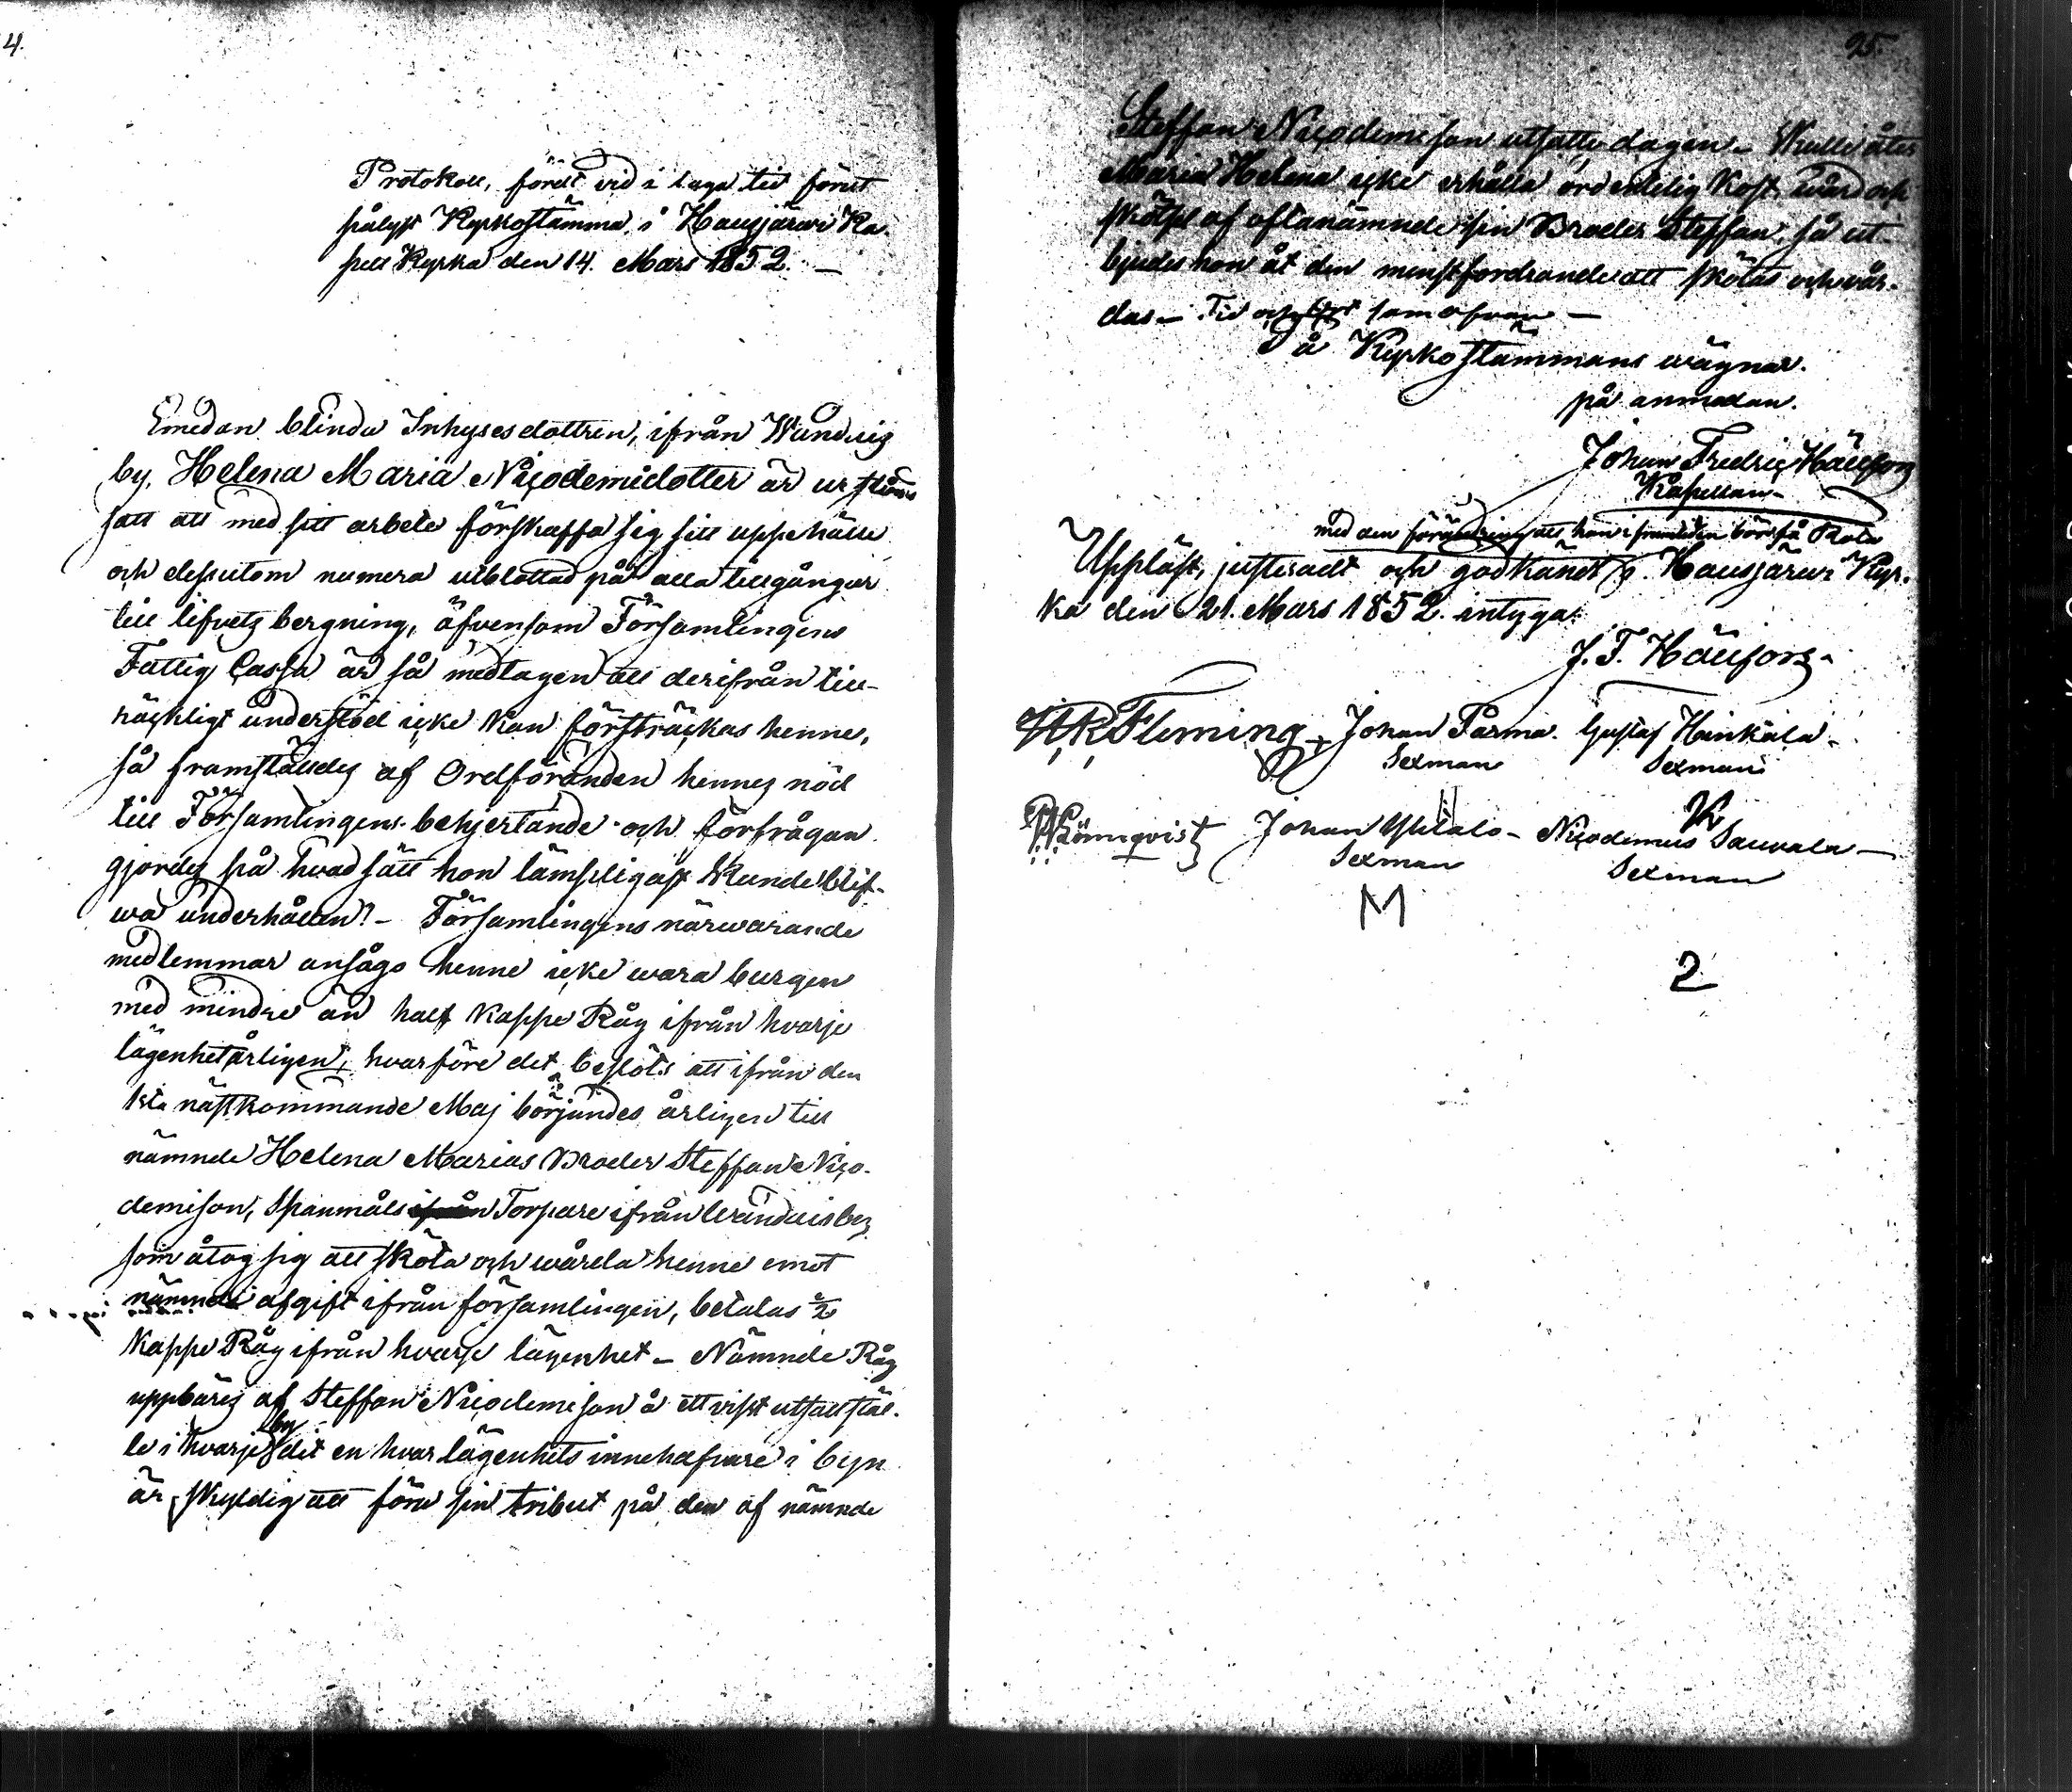 4.
Protokoll, fördt vid i laga tid förut
pålyst Kyrkostämma i Hausjärwi Ka-
pell Kyrka den 14. Mars 1852. —
Emedan blinda Inhysesdottren, ifrån
by, Helena Maria Nicodemidotter är ur stånd
satt att med sitt arbete förskaffa sig sitt uppehälle
och dessutom numera utblottad på alla tillgångar
till lifvets bergning, äfvensom Församlingens
Fattig Cassa är så medtagen att derifrån till-
räckligt understöd icke kan försträckas henne,
så framställdes af Ordföranden hennes nöd
till Församlingens behjertande och förfrågan
gjordes på hvad sätt hon lämpligast kunde blif-
wa underhållen? – Församlingens närwarande
medlemmar ansågo henne icke wara bergen
med mindre än half kappe Råg ifrån hvarje
lägenhet årligen, hvarföre det beslöts att ifrån den
1sta nästkommande Maj börjandes årligen till
nämnde Helena Marias Broder Steffan Nico-
demison, Spanmåls Torpare ifrån
som åtog sig att sköta och wårda henne emot
nämnde afgift ifrån församlingen, betalas ½
Kappe Råg ifrån hvarje lägenhet – Nämnde Råg
uppbäres af Steffan Nicodemison å ett visst utsatt stäl-
le i hvarje by dit en hvar lägenhets innehafvare i byn
är skyldig att föra sin tribut på den af nämnde
95.
Steffan Nicodemison utsatte dagen – Skulle åter
Maria Helena icke erhålla ordentelig kost, wård och
skötsel af oftanämnde sin Broder Steffan, så ut-
bjudes hon åt den minstfordrande att skötas och vår-
das – Tid och ort som ofvan –
å Kyrkostämmans wägnar.
på anmodan.
Johan Fredric
Kapellan
med den förändring att hon i framtiden bör få Rota
Uppläst, justeradt och godkändt i Hausjärwi Kyr-
ka den 21. Mars 1852. intyga:
J. F.
Fleming Johan Parma. Gustaf Hankala –
Sexman Sexman
Lönnqvist Johan – Nicodemus Sauvala –
Sexman Sexman
M
2